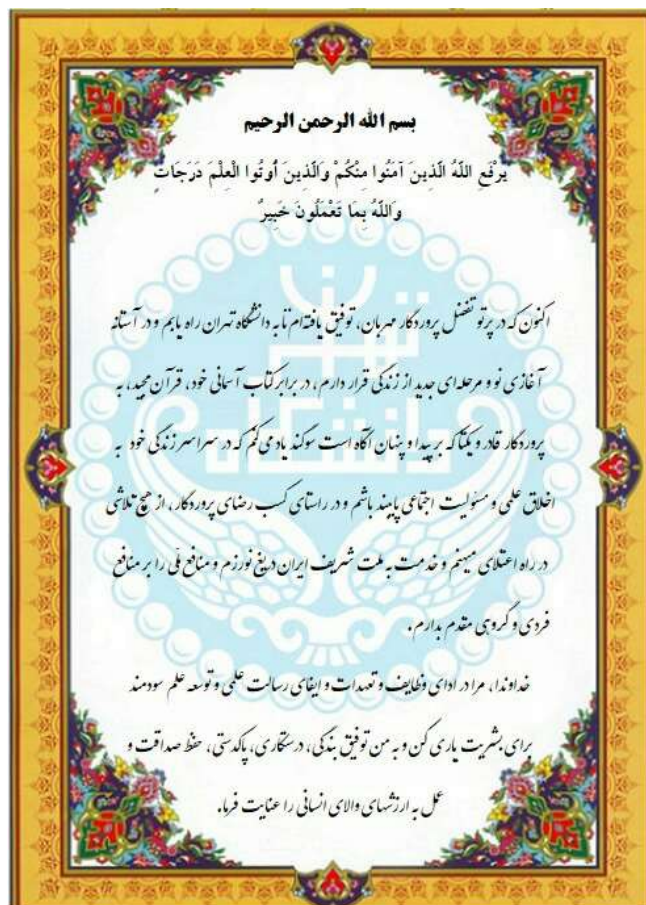 بسم الله الرحمن الرحیم
یَرْفَعِ اللَّهُ الَّذِینَ آمَنُوا مِنْكُمْ وَالَّذِینَ أُوتُوا الْعِلْمَ دَرَجَاتٍ
وَاللَّهُ بِمَا تَعْمَلُونَ خَبِیرٌ
اکنون که در پرتو تفضل پروردگار مهربان، توفیق یافته‌ام تا به دانشگاه تهران راه یابم و در آستانه
آغازی نو و مرحله‌ای جدید از زندگی قرار دارم، در برابر کتاب آسمانی خود، قرآن مجید، به
پروردگار قادر و یکتا که بر پیدا و پنهان آگاه است سوگند یاد می‌کنم که در سراسر زندگی خود به
اخلاق علمی و مسئولیت اجتماعی پایبند باشم و در راستای کسب رضای پروردگار، از هیچ تلاشی
در راه اعتلای میهنم و خدمت به ملت شریف ایران دریغ نورزم و منافع ملّی را بر منافع
فردی و گروهی مقدم بدارم.
خداوندا، مرا در ادای وظایف و تعهدات و ایفای رسالت علمی و توسعه علم سودمند
برای بشریت یاری کن و به من توفیق بندگی، درستکاری، پاکدستی، حفظ صداقت و
عمل به ارزشهای والای انسانی را عنایت فرما.
دانشگاه تهران